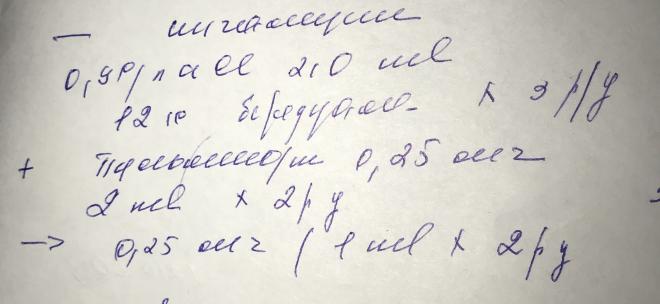 — ингаляции
0,9% NaCl 2,0 ml
12 к беродуала x 3 р/д
+ Пульмикорт 0,25 мг
2 ml x 2 р д
→ 0,25 мг / 1 ml x 2 р д